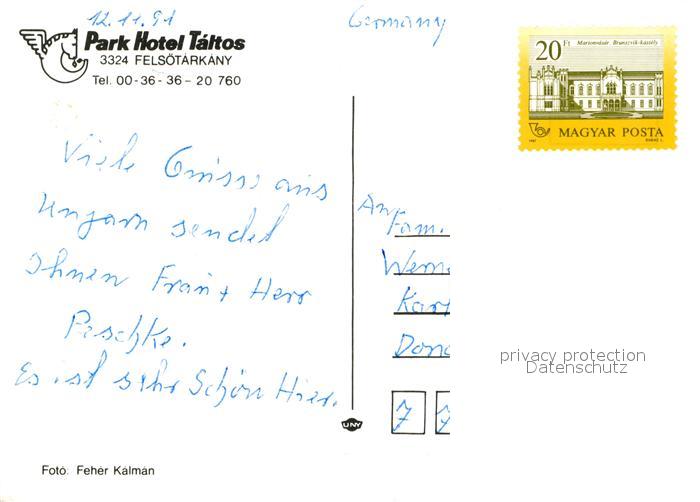 12.11.91
Germany
Park Hotel Táltos
3324 FELSŐTÁRKÁNY
Tel. 00-36-36-20 760
20 Ft
Martonvásár. Brunszvik-kastély
MAGYAR POSTA
1987
Viele Grüsse aus
Ungarn sendet
Ihnen Frau + Herr
Peschke.
Es ist sehr Schön Hier.
An
Fam.
Werne
Karl
Dona
7 7
UNY
privacy protection
Datenschutz
Fotó: Fehér Kálmán